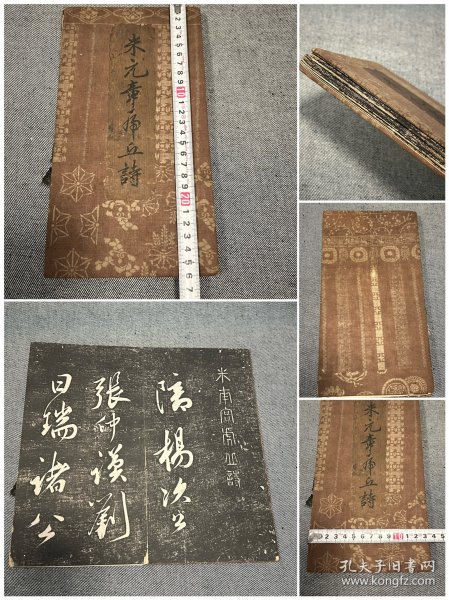 米元章乕丘詩
米南宮虎丘詩
陪楊次公
張仲謨劉
日瑞諸公
米元章乕丘詩
孔夫子旧书网
www.kongfz.com